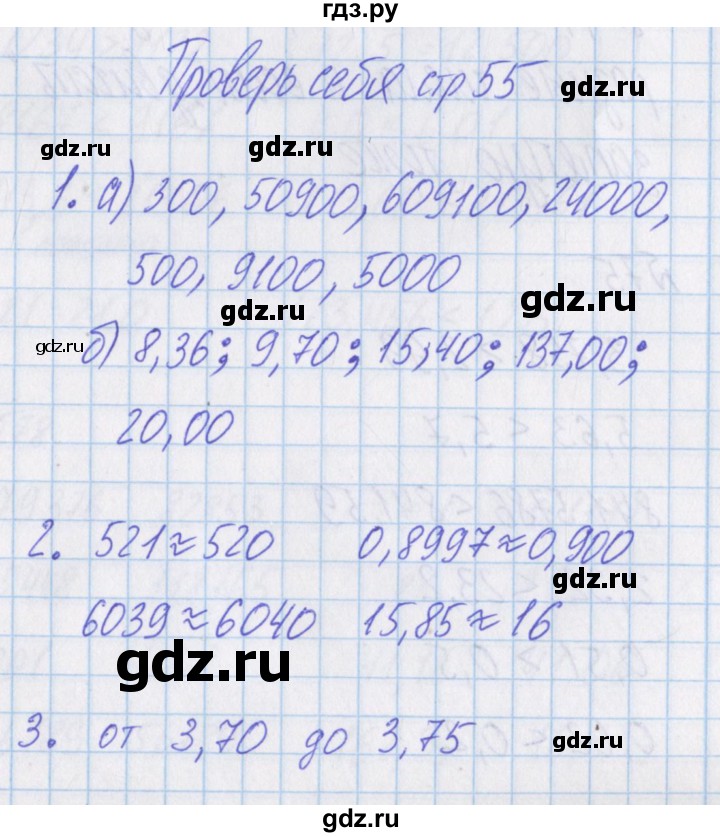 гдз.ру
Проверь себя стр 55
gdz.ru
gdz.ru
gdz.ru
1. а) 300, 50900, 609100, 24000,
500, 9100, 5000
gdz.ru
gdz.ru
gdz.ru
б) 8,36; 9,70; 15,40; 137,00;
20,00
2. 521≈520 0,8997≈0,900
gdz.ru
6039≈6040 15,85≈16
gdz.ru
3. от 3,70 до 3,75
gdz.ru
gdz.ru